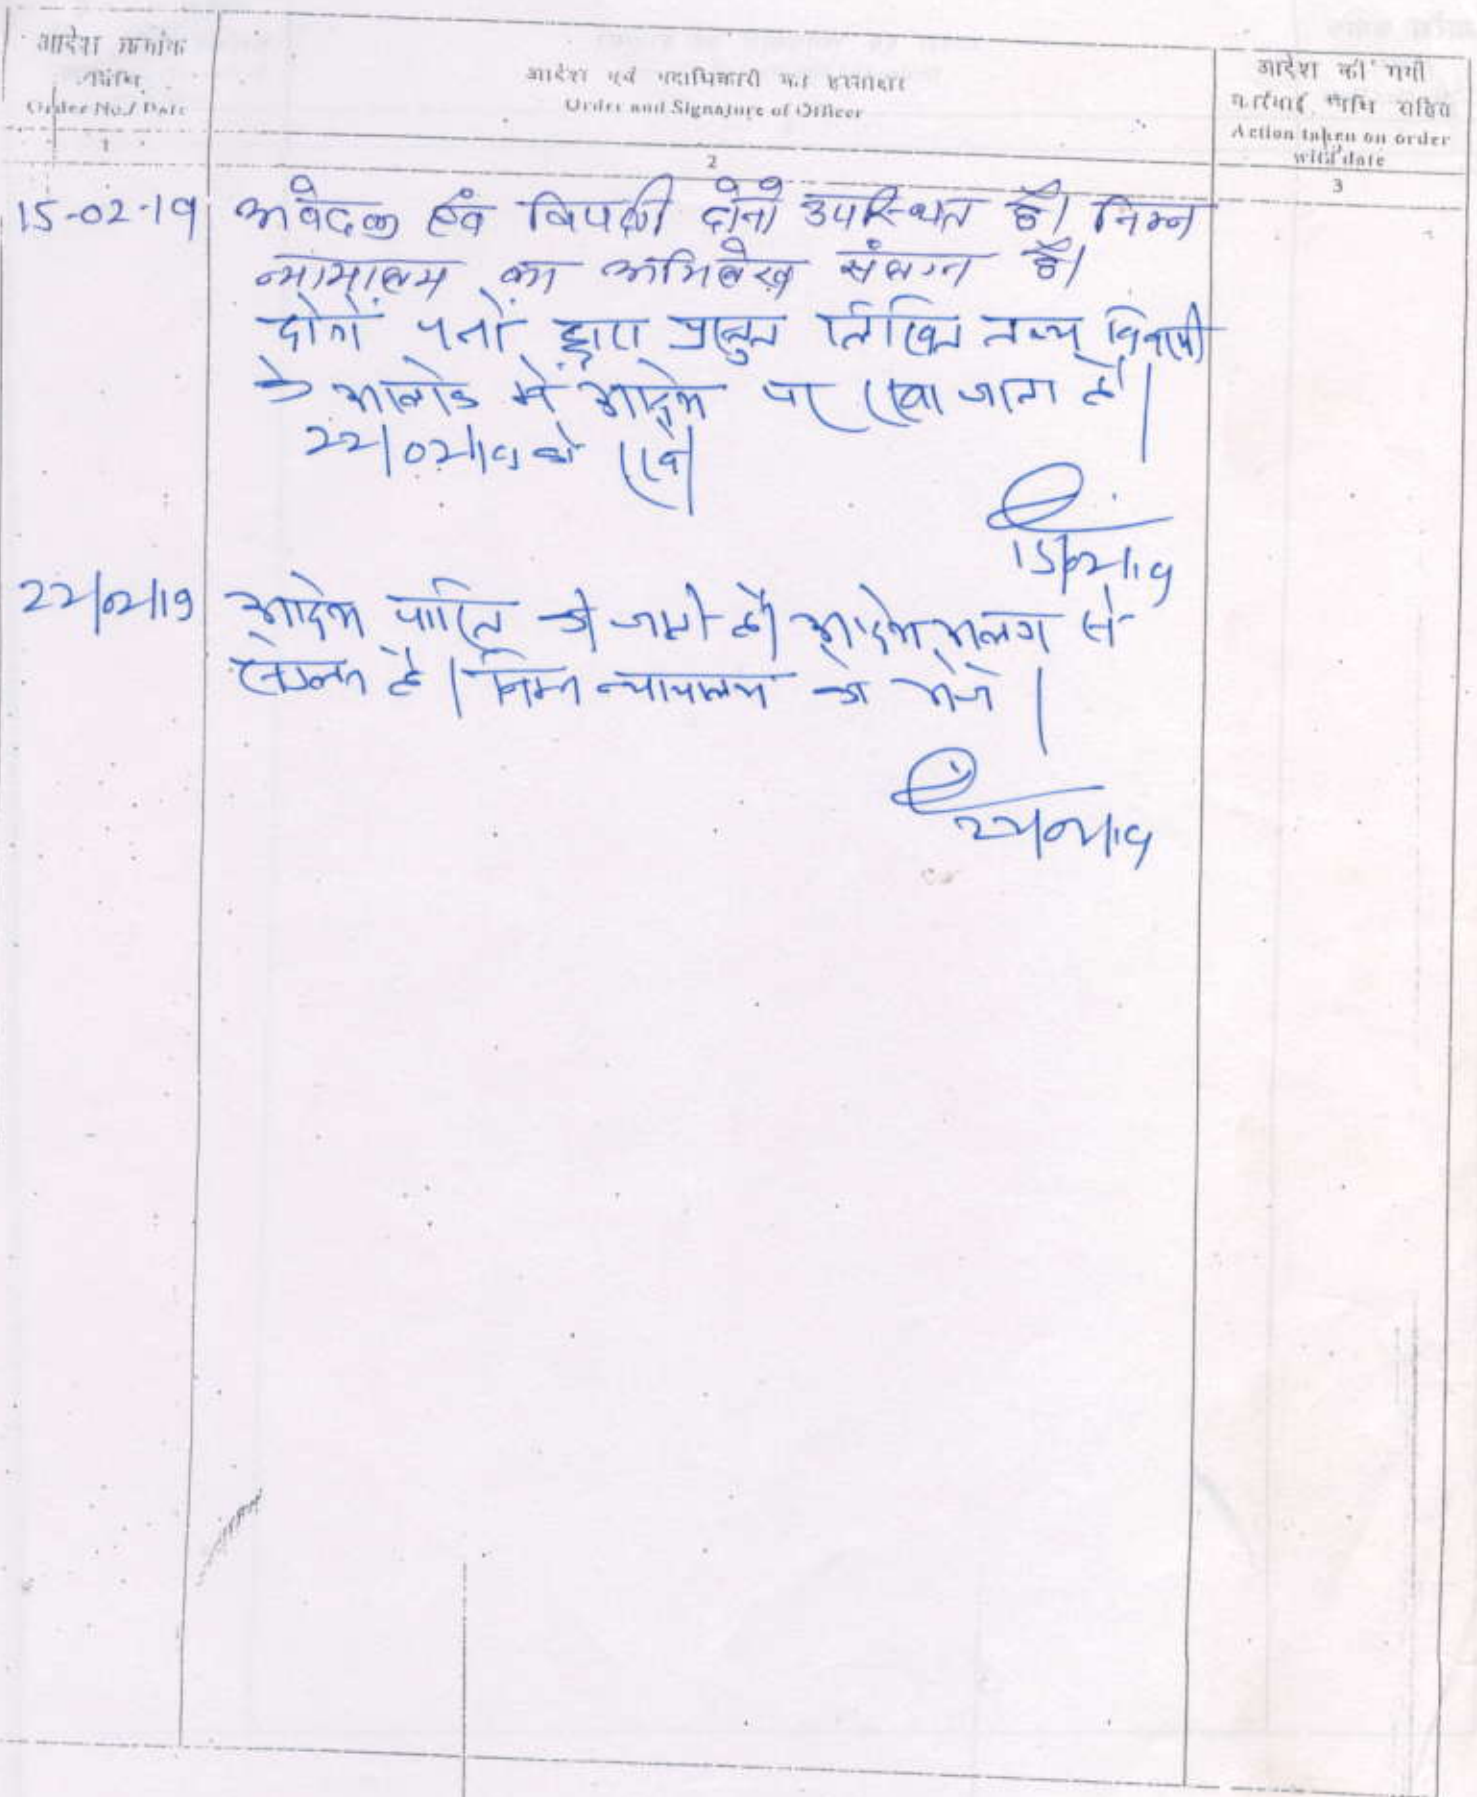 आदेश क्रमांक
तारीख
Order No./ Date
1
आदेश एवं पदाधिकारी का हस्ताक्षर
Order and Signature of Officer
2
आदेश की गयी
कार्रवाई तिथि सहित
Action taken on order
with date
3
15-02-19 आवेदक एवं विपक्षी दोनों उपस्थित हैं। निम्न
न्यायालय का अभिलेख संलग्न है।
दोनों पक्षों द्वारा प्रस्तुत लिखित तथ्य
के आलोक में आदेश पर रखा जाता है।
22/02/19 को रखें।
15/02/19
22/02/19 आदेश पारित की जाती है। आदेश अलग से
संलग्न है। निम्न न्यायालय को भेजें।
22/02/19